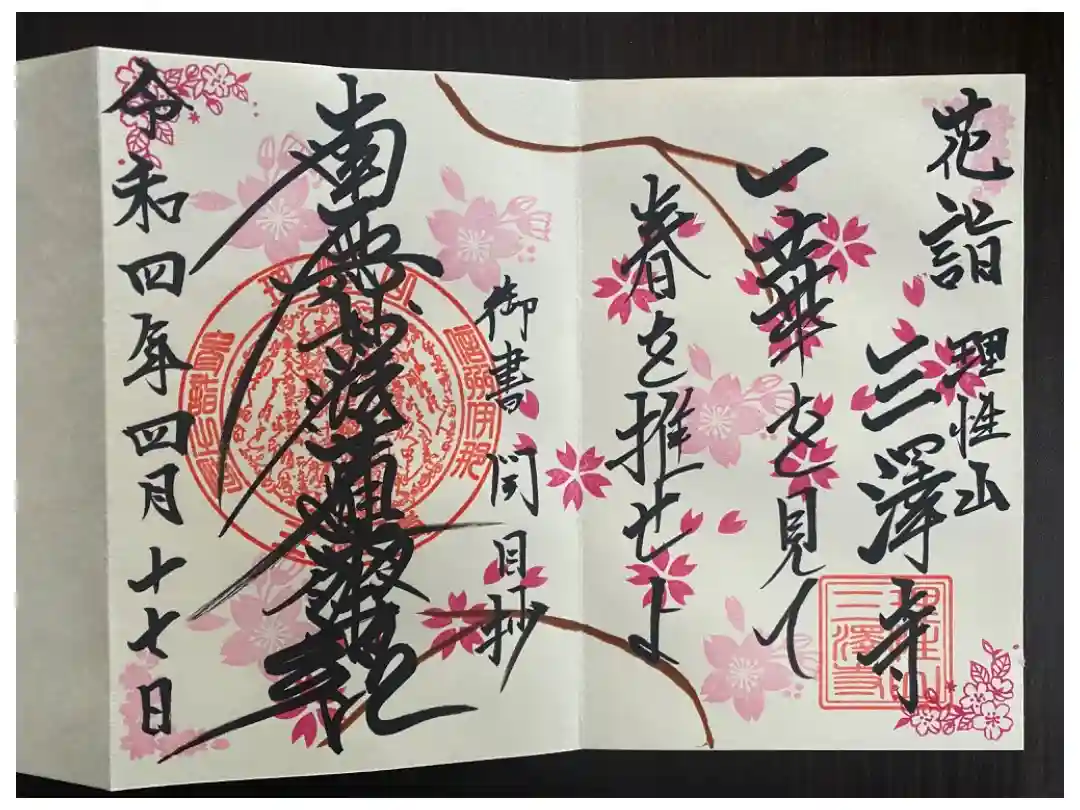 花詣
理性山
三澤寺
一華を見て
春を推せよ
御書 開目抄
南無妙法蓮華経
令和四年四月十七日
理性山
三澤寺